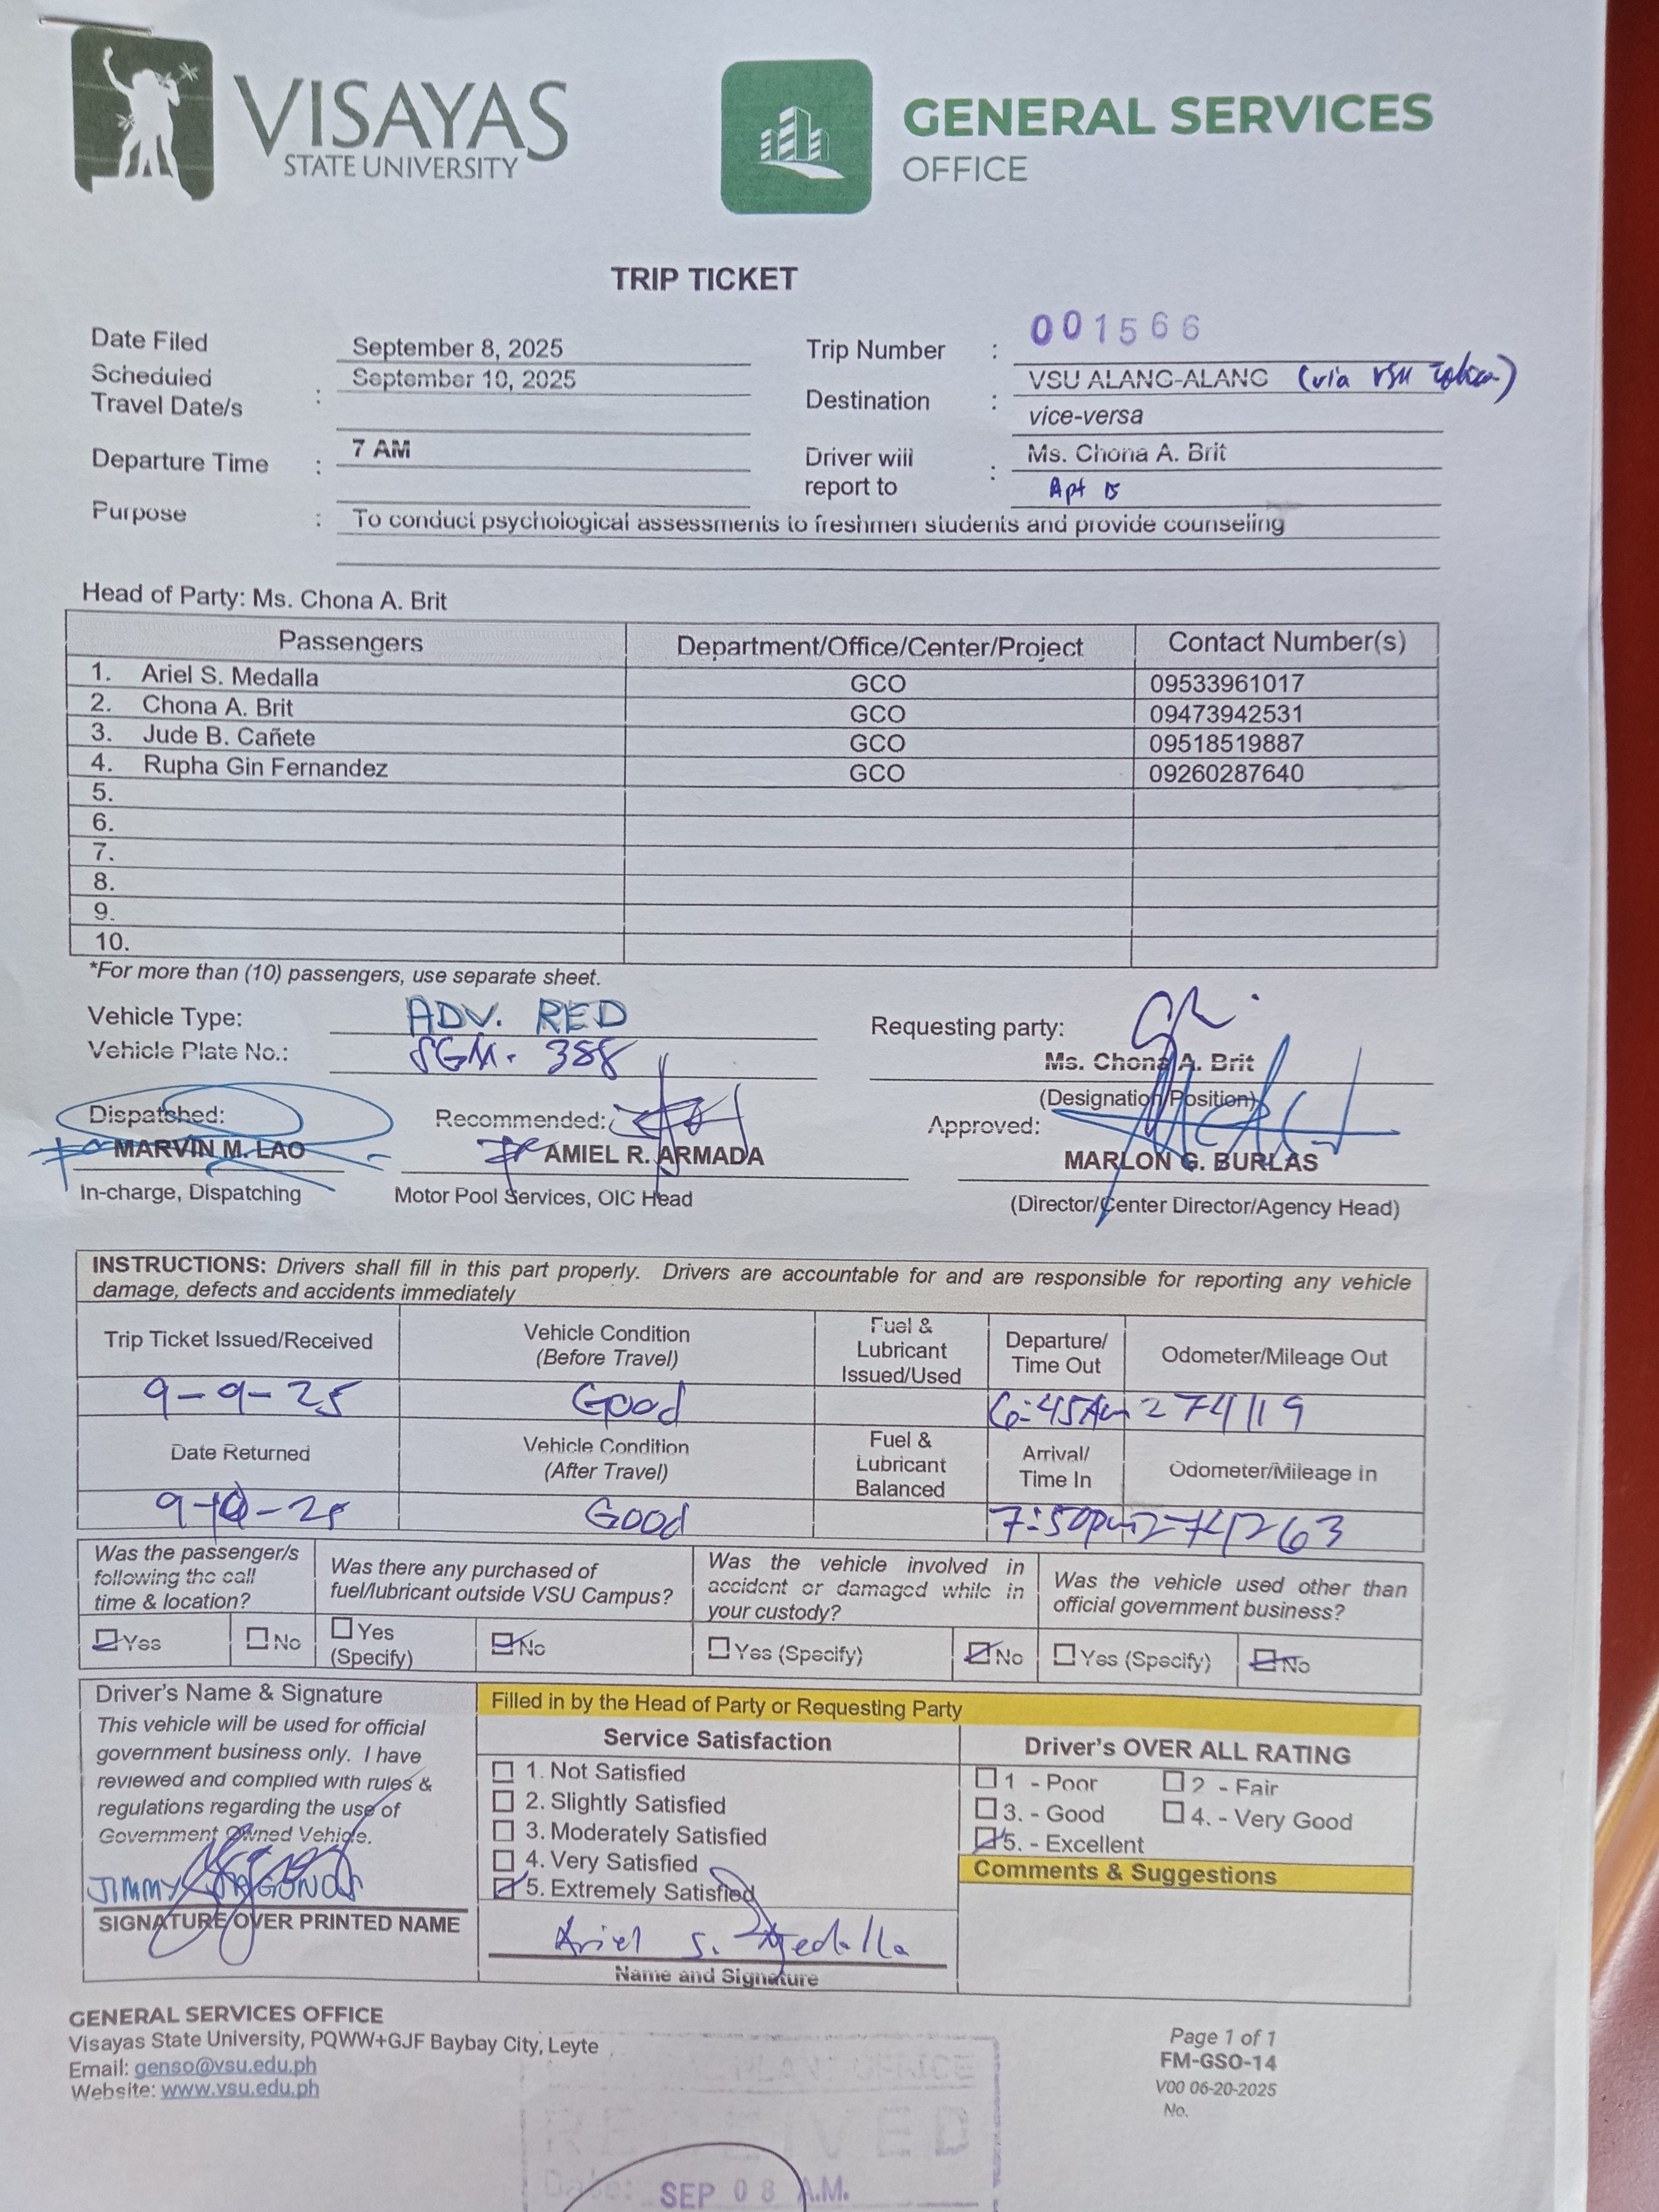 VISAYAS
STATE UNIVERSITY
GENERAL SERVICES
OFFICE
TRIP TICKET
Date Filed September 8, 2025
Trip Number : 001566
Scheduled Travel Date/s : September 10, 2025
Destination : VSU ALANG-ALANG (via VSU
vice-versa
Departure Time : 7 AM
Driver will report to : Ms. Chona A. Brit
Apt 15
Purpose : To conduct psychological assessments to freshmen students and provide counseling
Head of Party: Ms. Chona A. Brit
Passengers Department/Office/Center/Project Contact Number(s)
1. Ariel S. Medalla GCO 09533961017
2. Chona A. Brit GCO 09473942531
3. Jude B. Cañete GCO 09518519887
4. Rupha Gin Fernandez GCO 09260287640
5.
6.
7.
8.
9.
10.
*For more than (10) passengers, use separate sheet.
Vehicle Type: ADV. RED
Vehicle Plate No.: SGM- 388
Requesting party:
Ms. Chona A. Brit
(Designation/Position)
Dispatched:
MARVIN M. LAO
In-charge, Dispatching
Recommended:
AMIEL R. ARMADA
Motor Pool Services, OIC Head
Approved:
MARLON G. BURLAS
(Director/Center Director/Agency Head)
INSTRUCTIONS: Drivers shall fill in this part properly. Drivers are accountable for and are responsible for reporting any vehicle
damage, defects and accidents immediately
Trip Ticket Issued/Received Vehicle Condition (Before Travel) Fuel & Lubricant Issued/Used Departure/ Time Out Odometer/Mileage Out
9-9-25 Good 6:45Am 274119
Date Returned Vehicle Condition (After Travel) Fuel & Lubricant Balanced Arrival/ Time In Odometer/Mileage In
9-10-25 Good 7:50pm 274263
Was the passenger/s following the call time & location?
Was there any purchased of fuel/lubricant outside VSU Campus?
Was the vehicle involved in accident or damaged while in your custody?
Was the vehicle used other than official government business?
Yes No Yes (Specify) No Yes (Specify) No Yes (Specify) No
Driver's Name & Signature
This vehicle will be used for official
government business only. I have
reviewed and complied with rules &
regulations regarding the use of
Government Owned Vehicle.
JIMMY
SIGNATURE OVER PRINTED NAME
Filled in by the Head of Party or Requesting Party
Service Satisfaction
1. Not Satisfied
2. Slightly Satisfied
3. Moderately Satisfied
4. Very Satisfied
5. Extremely Satisfied
Ariel S. Medalla
Name and Signature
Driver's OVER ALL RATING
1 - Poor 2 - Fair
3. - Good 4. - Very Good
5. - Excellent
Comments & Suggestions
GENERAL SERVICES OFFICE
Visayas State University, PQWW+GJF Baybay City, Leyte
Email: genso@vsu.edu.ph
Website: www.vsu.edu.ph
Page 1 of 1
FM-GSO-14
V00 06-20-2025
No.
OFFICE
RECEIVED
Date: SEP 08 A.M.